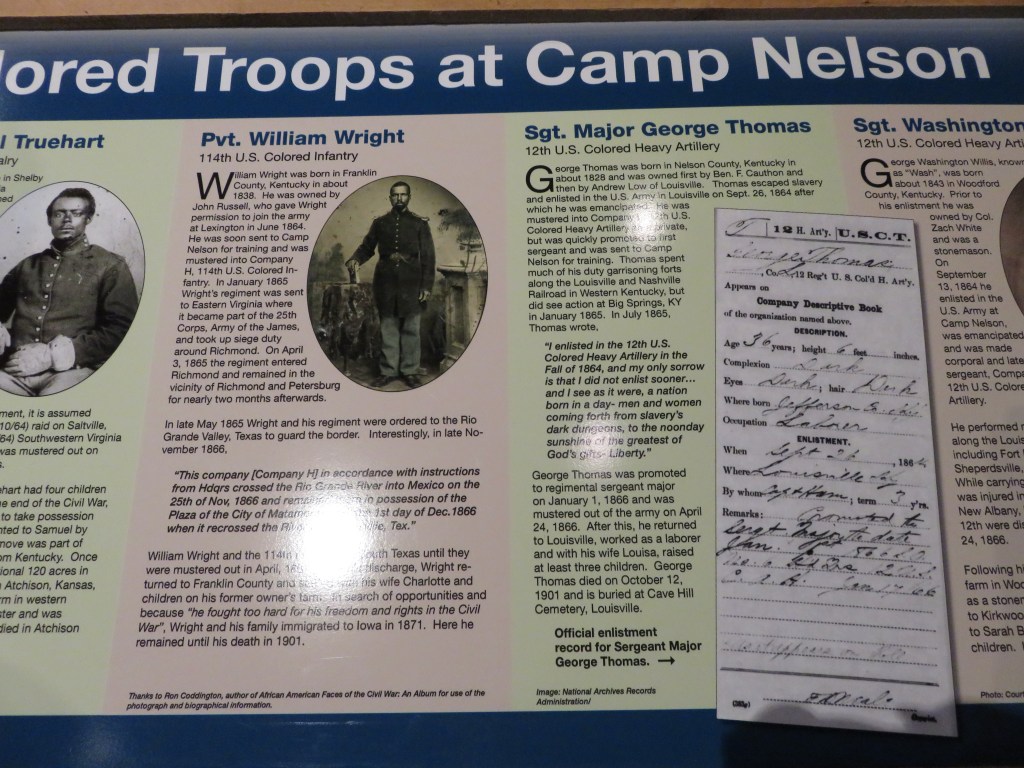 lored Troops at Camp Nelson
l Truehart
alry
n in Shelby
ment, it is assumed
10/64) raid on Saltville,
/64) Southwestern Virginia
was mustered out on
s.
ehart had four children
e end of the Civil War,
to take possession
nted to Samuel by
move was part of
om Kentucky. Once
tional 120 acres in
Atchison, Kansas,
rm in western
ster and was
died in Atchison
Pvt. William Wright
114th U.S. Colored Infantry
William Wright was born in Franklin
County, Kentucky in about
1838. He was owned by
John Russell, who gave Wright
permission to join the army
at Lexington in June 1864.
He was soon sent to Camp
Nelson for training and was
mustered into Company
H, 114th U.S. Colored In-
fantry. In January 1865
Wright's regiment was sent
to Eastern Virginia where
it became part of the 25th
Corps, Army of the James,
and took up siege duty
around Richmond. On April
3, 1865 the regiment entered
Richmond and remained in the
vicinity of Richmond and Petersburg
for nearly two months afterwards.
In late May 1865 Wright and his regiment were ordered to the Rio
Grande Valley, Texas to guard the border. Interestingly, in late No-
vember 1866,
"This company [Company H] in accordance with instructions
from Hdqrs crossed the Rio Grande River into Mexico on the
25th of Nov, 1866 and remained in possession of the
Plaza of the City of Matamoros 1st day of Dec.1866
when it recrossed the Rio Tex."
William Wright and the 114th South Texas until they
were mustered out in April, discharge, Wright re-
turned to Franklin County and with his wife Charlotte and
children on his former owner's farm. In search of opportunities and
because "he fought too hard for his freedom and rights in the Civil
War", Wright and his family immigrated to Iowa in 1871. Here he
remained until his death in 1901.
Thanks to Ron Coddington, author of African American Faces of the Civil War: An Album for use of the
photograph and biographical information.
Sgt. Major George Thomas
12th U.S. Colored Heavy Artillery
George Thomas was born in Nelson County, Kentucky in
about 1828 and was owned first by Ben. F. Cauthon and
then by Andrew Low of Louisville. Thomas escaped slavery
and enlisted in the U.S. Army in Louisville on Sept. 26, 1864 after
which he was emancipated. He was
mustered into Company 12th U.S.
Colored Heavy Artillery private,
but was quickly promoted to first
sergeant and was sent to Camp
Nelson for training. Thomas spent
much of his duty garrisoning forts
along the Louisville and Nashville
Railroad in Western Kentucky, but
did see action at Big Springs, KY
in January 1865. In July 1865,
Thomas wrote,
"I enlisted in the 12th U.S.
Colored Heavy Artillery in the
Fall of 1864, and my only sorrow
is that I did not enlist sooner...
and I see as it were, a nation
born in a day- men and women
coming forth from slavery's
dark dungeons, to the noonday
sunshine of the greatest of
God's gifts- Liberty."
George Thomas was promoted
to regimental sergeant major
on January 1, 1866 and was
mustered out of the army on April
24, 1866. After this, he returned
to Louisville, worked as a laborer
and with his wife Louisa, raised
at least three children. George
Thomas died on October 12,
1901 and is buried at Cave Hill
Cemetery, Louisville.
Official enlistment
record for Sergeant Major
George Thomas. →
Image: National Archives Records
Administration/
T 12 H. Art'y. U.S.C.T.
George Thomas
, Co. 12 Reg't U. S. Col'd H. Art'y.
Appears on
Company Descriptive Book
of the organization named above.
DESCRIPTION.
Age 36 years; height 6 feet inches.
Complexion Dark
Eyes Dark; hair Dark
Where born Jefferson Co.
Occupation Laborer
ENLISTMENT.
When Sept 26, 1864
Where Louisville Ky
By whom Capt Ham; term 3 y'rs.
Remarks: Promoted to
Sergt Major to date
Jan.
Sgt. Washington
12th U.S. Colored Heavy Arti
George Washington Willis, known
as "Wash", was born
about 1843 in Woodford
County, Kentucky. Prior to
his enlistment he was
owned by Col.
Zach White
and was a
stonemason.
On
September
13, 1864 he
enlisted in the
U.S. Army at
Camp Nelson,
was emancipated
and was made
corporal and late
sergeant, Comp
12th U.S. Colore
Artillery.
He performed
along the Louis
including Fort
Sheperdsville,
While carrying
was injured in
New Albany,
12th were dis
24, 1866.
Following hi
farm in Woo
as a stoner
to Kirkwoo
to Sarah B
children.
Photo: Cour